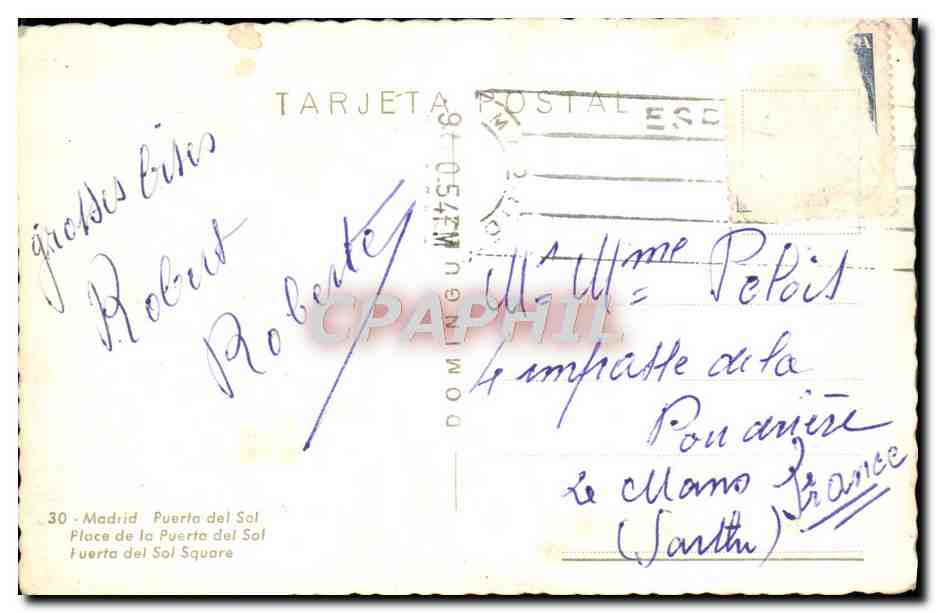 TARJETA POSTAL
ESP
grosses bises
Robert
Roberte
DOMINGU
CPAPHIL
Mr Mme Pelois
4 impasse de la
Poudrière
Le Mans France
(Sarthe)
30 - Madrid Puerta del Sol
Place de la Puerta del Sol
Puerta del Sol Square